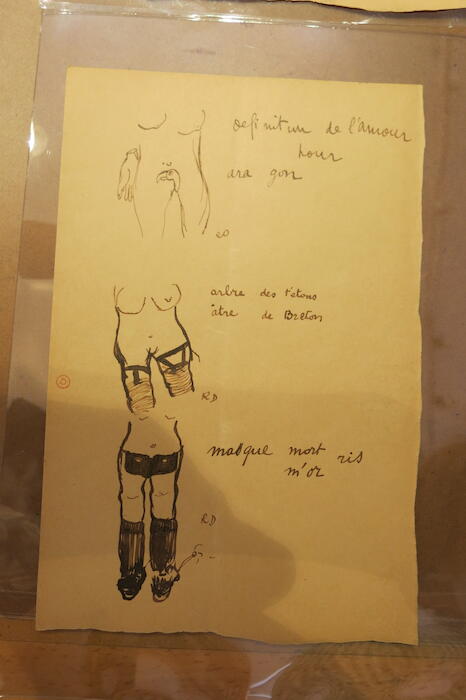 definition de l'amour
pour
ara gon
RD
arbre des tétons
âtre de Breton
RD
masque mort ris
m'or
RD